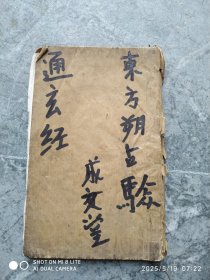 東方朔占驗
通玄經
成文堂
SHOT ON MI 8 LITE
AI DUAL CAMERA
2025/5/19 07:22